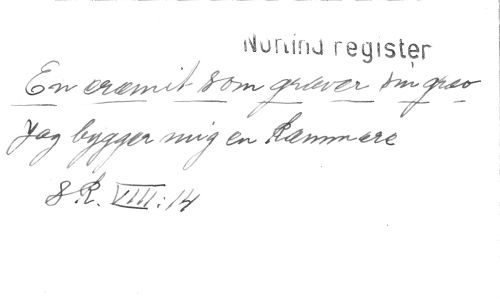 Nurlind register
En eremit som gräver sin grav
Jag bygger mig en kammare
SR. VIII:14